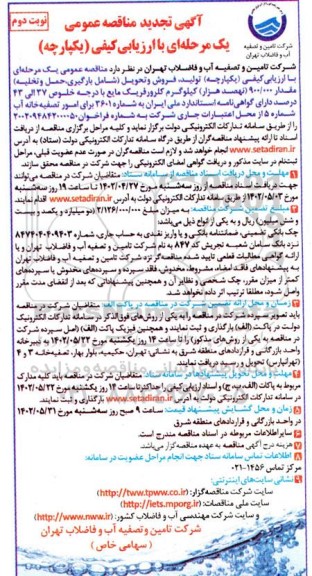 آگهی تجدید مناقصه عمومی
نوبت دوم
یک مرحله‌ای با ارزیابی کیفی (یکپارچه)
شرکت تامین و تصفیه
آب و فاضلاب تهران
شرکت تامین و تصفیه آب و فاضلاب تهران در نظر دارد مناقصه عمومی یک مرحله‌ای
با ارزیابی کیفی (یکپارچه) تولید، فروش وتحویل (شامل بارگیری،حمل و تخلیه)
مقدار ۹۰۰/۰۰۰ (نهصد هزار) کیلوگرم کلروفریک مایع با درجه خلوص ۳۷ الی ۴۳
درصد دارای گواهی‌نامه استاندارد ملی ایران به شماره ۳۶۰۱ برای امور تصفیه‌خانه آب
شماره ۵ از محل اعتبارات جاری شرکت به شماره فراخوان
را از طریق سامانه تدارکات الکترونیکی دولت برگزار نماید و کلیه مراحل برگزاری مناقصه از دریافت
اسناد تا ارائه پیشنهاد مناقصه‌گران از طریق درگاه سامانه تدارکات الکترونیکی دولت (ستاد) به آدرس
www.setadiran.ir انجام خواهد شد و لازم است مناقصه‌گران در صورت عدم عضویت قبلی، مراحل
ثبت‌نام در سایت مذکور و دریافت گواهی امضای الکترونیکی را جهت شرکت در مناقصه محقق سازند.
۱ مهلت و محل دریافت اسناد مناقصه از سامانه ستاد: متقاضیان شرکت در مناقصه می‌توانند
جهت دریافت اسناد مناقصه از روز سه‌شنبه مورخ ۱۴۰۲/۰۴/۲۷ تا ساعت ۱۹ روز سه‌شنبه
مورخ ۱۴۰۲/۰۵/۰۳ از طریق سامانه تدارکات الکترونیکی دولت به آدرس www.setadiran.ir اقدام نمایند.
۲ مبلغ تضمین شرکت در مناقصه: به میزان مبلغ
و شش میلیون) ریال و به یکی از انواع ذیل می‌باشد:
چک بانکی تضمینی، ضمانتنامه بانکی و یا واریز نقدی به حساب جاری شماره
نزد بانک سامان شعبه تجریش کد ۸۴۷ به نام شرکت تامین و تصفیه آب و فاضلاب تهران و یا
ارائه گواهی مطالبات قطعی تایید شده مناقصه‌گر نزد شرکت تامین و تصفیه آب و فاضلاب تهران
به پیشنهادهای فاقد امضاء، مشروط، مخدوش، فاقد سپرده و سپرده‌های مخدوش یا سپرده‌های
کمتر از میزان مقرر، چک شخصی و نظایر آن و همچنین پیشنهاداتی که بعد از انقضای مدت مقرر
واصل شود، مطلقا ترتیب اثر داده نخواهد شد.
۳ زمان و محل ارائه تضمین شرکت در مناقصه در پاکت الف: متقاضیان شرکت در مناقصه
باید تصویر سپرده شرکت در مناقصه را به یکی از روش‌های فوق‌الذکر در سامانه تدارکات الکترونیک
دولت در پاکت (الف) بارگذاری و ثبت نمایند و همچنین فیزیک پاکت (الف) (اصل سپرده شرکت
در مناقصه به یکی از روش‌های مذکور) را تا ساعت ۱۴ روز یکشنبه مورخ ۱۴۰۲/۰۵/۲۲ به دبیرخانه
واحد بازرگانی و قراردادهای منطقه شرق به نشانی: تهران، حکیمیه، بلوار بهار، تصفیه‌خانه ۳ و ۴
(تهرانپارس) تحویل و رسید دریافت نمایند.
۴ مهلت و محل تحویل پیشنهادها در سامانه ستاد: متقاضیان شرکت در مناقصه باید کلیه مدارک
مربوط به پاکات (الف، ب، ج) و اسناد ارزیابی کیفی را حداکثر تا ساعت ۱۴ روز یکشنبه مورخ ۱۴۰۲/۰۵/۲۲
در سامانه تدارکات الکترونیکی دولت به آدرس www.setadiran.ir بارگذاری و ثبت نمایند.
۵ زمان و محل گشایش پیشنهاد قیمت: ساعت ۹ صبح روز سه‌شنبه مورخ ۱۴۰۲/۰۵/۳۱
در واحد بازرگانی و قراردادهای منطقه شرق
۶ سایر اطلاعات مربوطه در اسناد مناقصه مندرج است.
۷ هزینه درج آگهی مناقصه به عهده مناقصه‌گر می‌باشد.
۸ اطلاعات تماس سامانه ستاد جهت انجام مراحل عضویت در سامانه:
مرکز تماس ۱۴۵۶-۰۲۱
۹ نشانی سایت‌های اینترنتی:
سایت شرکت مناقصه‌گزار: (http://tww.tpww.co.ir)
سایت ملی مناقصات: (http://iets.mporg.ir)
و سایت شرکت مهندسی آب و فاضلاب کشور: (http://www.nww.ir)
شرکت تامین و تصفیه آب و فاضلاب تهران
(سهامی خاص)